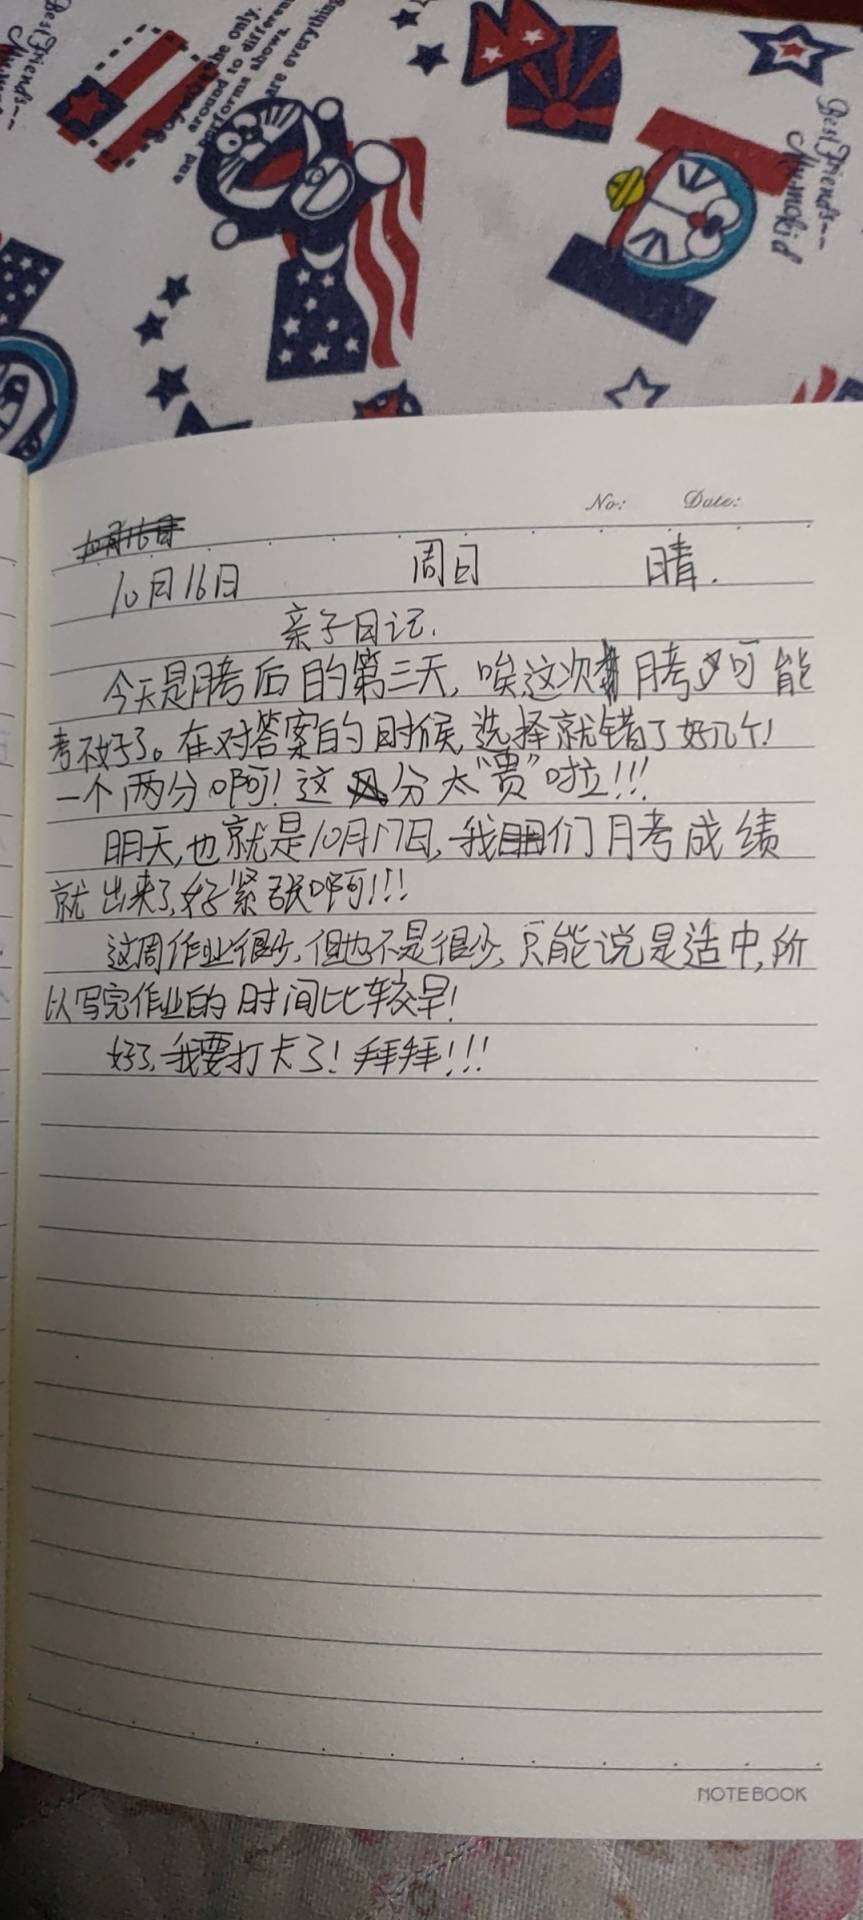 the only.
around to different
and performs shows.
are everything
Best Friends--
Best Friends--
No: Date:
10月16日 周日 晴.
亲子日记.
今天是月考后的第三天, 唉这次月考可能
考不好了。在对答案的时候,选择就错了好几个!
一个两分啊!这分太“贵”啦!!!
明天,也就是10月17日,我们月考成绩
就出来了,好紧张啊!!!
这周作业很少,但也不是很少,只能说是适中,所
以写完作业的时间比较早!
好了,我要打卡了!拜拜!!!
NOTEBOOK